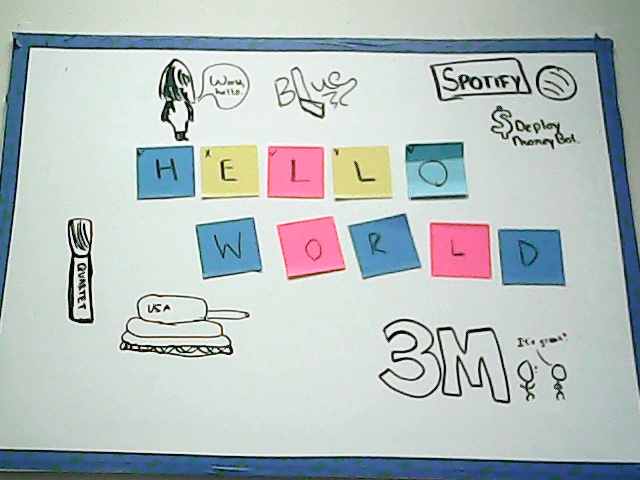 Work,
hello.
Blue
SPOTIFY
$ Deploy
money Bot.
HELLO
WORLD
QUARTET
USA
3M
It's great"